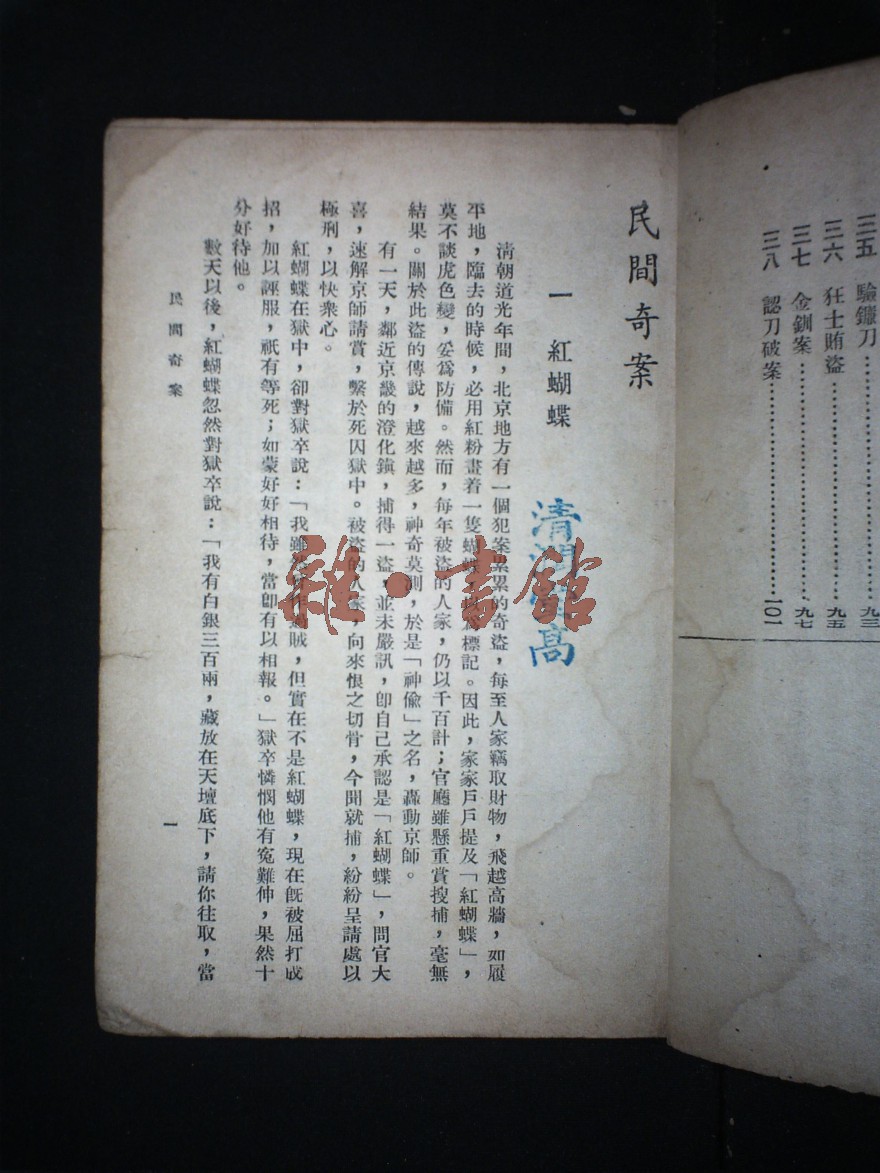 三五　驗鐮刀…………………九三
三六　狂士賄盜…………………九五
三七　金釧案…………………九七
三八　認刀破案…………………一〇一
民間奇案
一　紅蝴蝶
清 高
清朝道光年間，北京地方有一個犯案累累的奇盜，每至人家竊取財物，飛越高牆，如履
平地，臨去的時候，必用紅粉畫着一隻蝴蝶 標記。因此，家家戶戶提及「紅蝴蝶」，
莫不談虎色變，妥爲防備。然而，每年被盜的人家，仍以千百計；官廳雖懸重賞搜捕，毫無
結果。關於此盜的傳說，越來越多，神奇莫測，於是「神偸」之名，轟動京師。
有一天，鄰近京畿的澄化鎭，捕得一盜，並未嚴訊，卽自己承認是「紅蝴蝶」，問官大
喜，速解京師請賞，繫於死囚獄中。被盜的人家，向來恨之切骨，今聞就捕，紛紛呈請處以
極刑，以快衆心。
紅蝴蝶在獄中，卻對獄卒說：「我雖 賊，但實在不是紅蝴蝶，現在旣被屈打成
招，加以誣服，祇有等死；如蒙好好相待，當卽有以相報。」獄卒憐憫他有寃難伸，果然十
分好待他。
數天以後，紅蝴蝶忽然對獄卒說：「我有白銀三百兩，藏放在天壇底下，請你往取，當
民間奇案
一
雜·書館